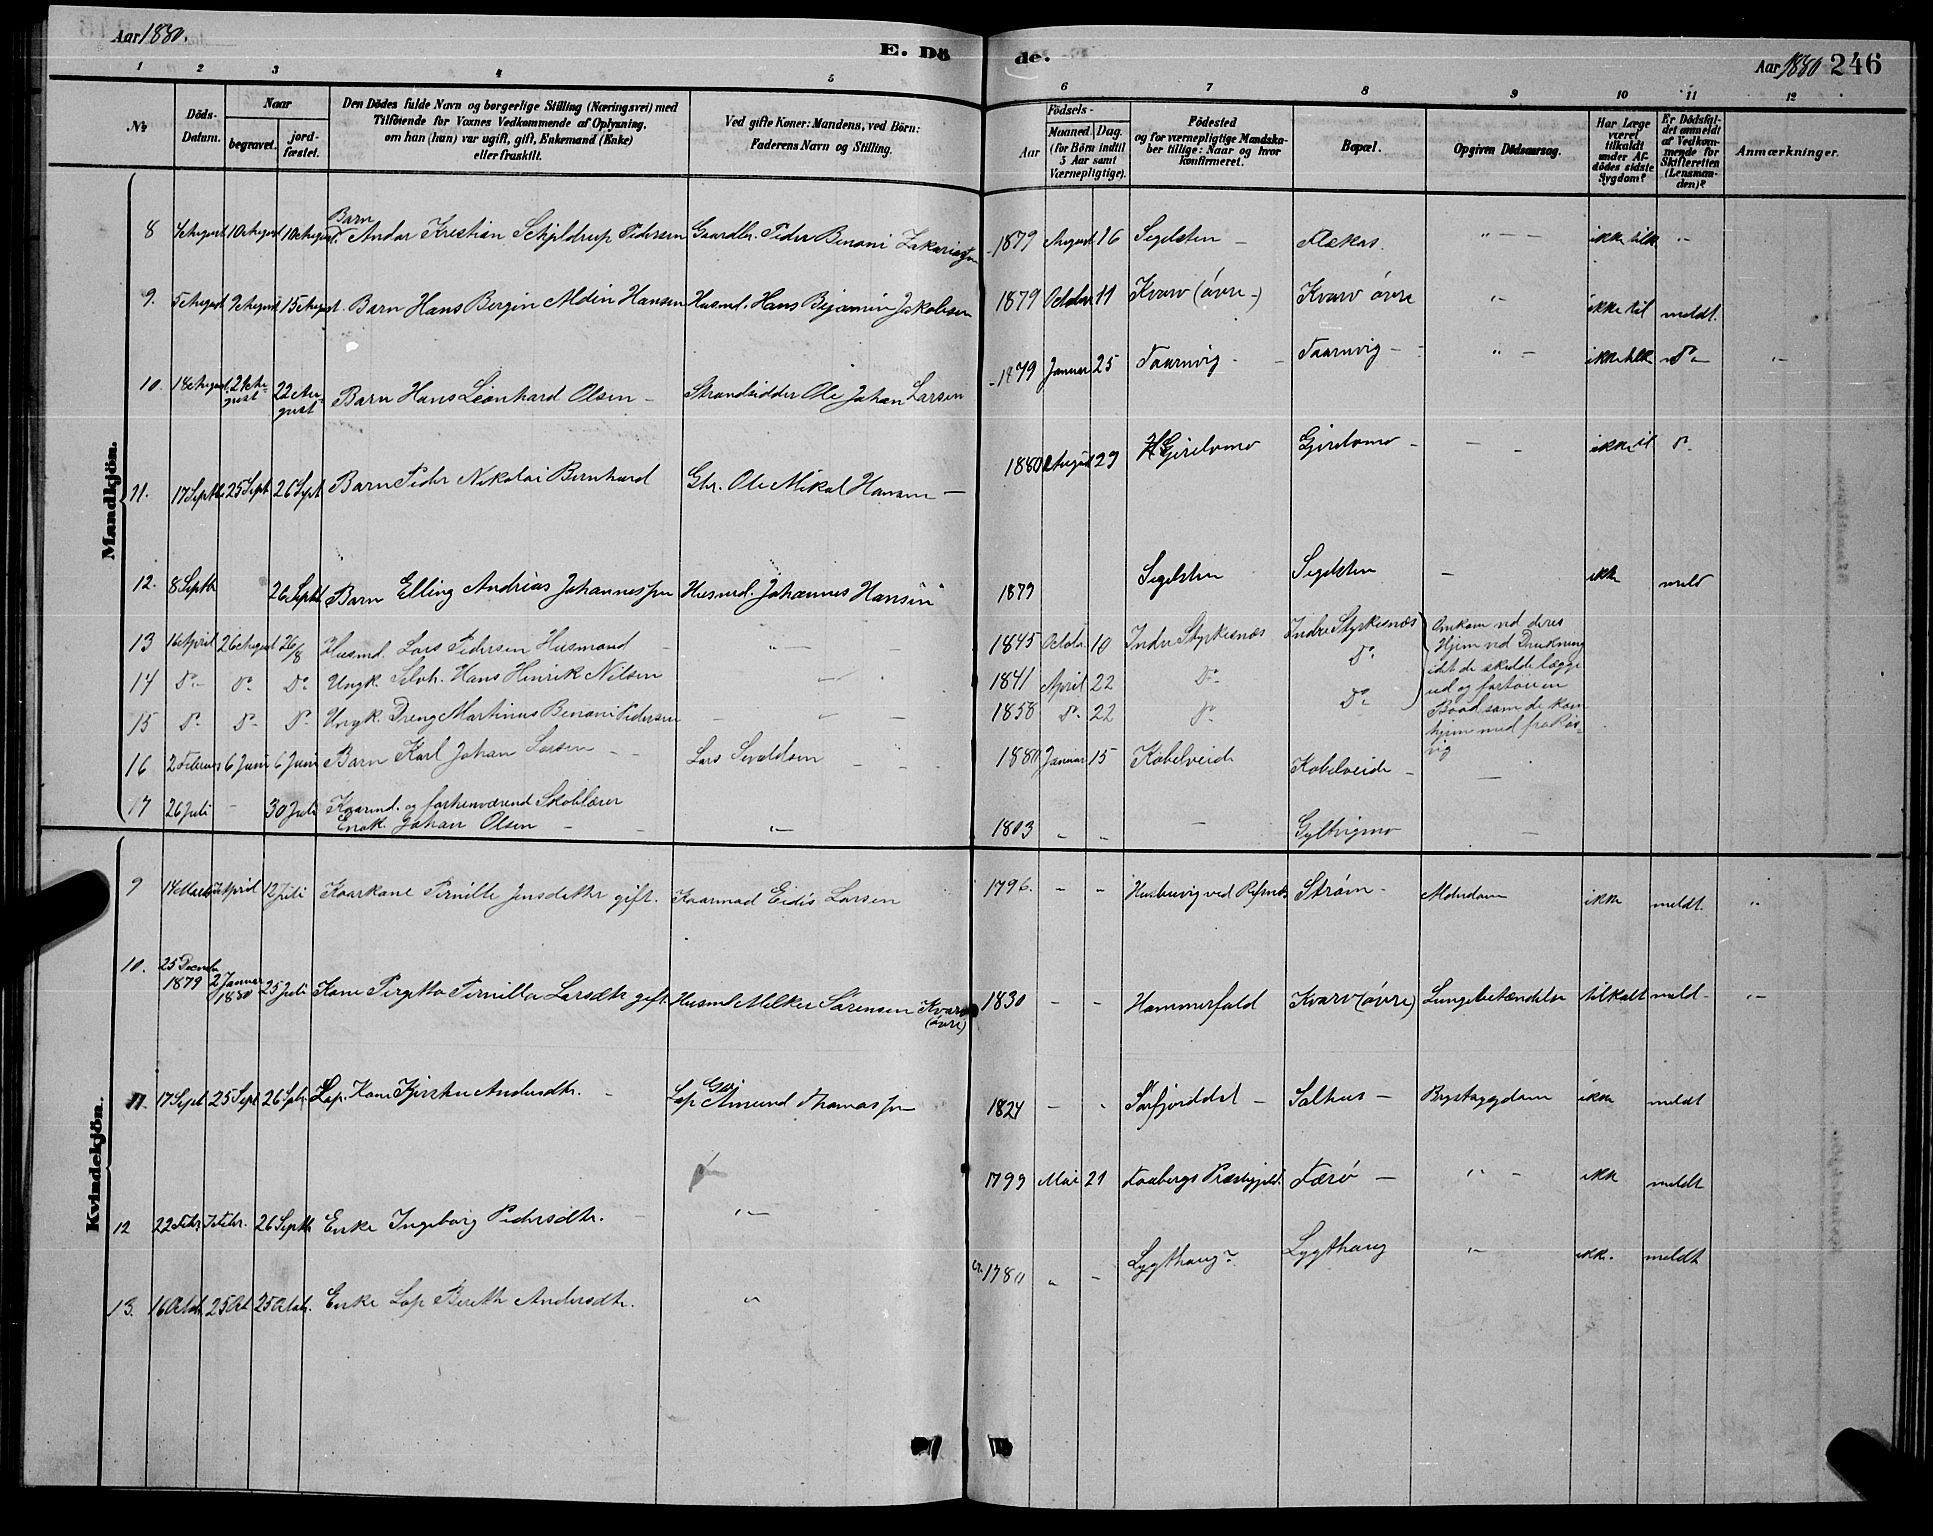 Aar 1880.
E. Dö de.
Aar 1880 246
1 2 3 4 5 6 7 8 9 10 11 12
No
Döds-Datum.
Naar
begravet.
jordfæstet.
Den Dödes fulde Navn og borgerlige Stilling (Næringsvei) med
Tilföiende for Voxnes Vedkommende af Oplysning,
om han (hun) var ugift, gift, Enkemand (Enke)
eller fraskilt.
Ved gifte Koner: Mandens, ved Börn:
Faderens Navn og Stilling.
Födsels-
Aar
Maaned. Dag.
(for Börn indtil
5 Aar samt
Værnepligtige).
Födested
og for værnepligtige Mandska-
ber tillige: Naar og hvor
konfirmeret.
Bopæl.
Opgiven Dödsaarsag.
Har Læge
været
tilkaldt
under Af-
dödes sidste
Sygdom?
Er Dödsfal-
det anmeldt
af Vedkom-
mende for
Skifteretten
(Lensman-
den)?
Anmærkninger.
Mandkjön.
8 4 August 10 August 10 August Barn Andor Kristian Schjeldrup Pedersen Gaardbr. Peder Benoni Zakariassen 1879 August 16 Segelsten Flekas. ikke tilk "
9. 5 August 9 August 15 August. Barn Hans Bergin Aldin Hansen Husmd. Hans Bejamin Jakobsen 1879 October 11 Kvarv (övre) Kvarv övre " ikke til meldt.
10. 18 August 21 August 22 August Barn Hans Leonhard Olsen Strandsidder Ole Johan Larsen 1879 Januar 25 Taarnvig Taarnvig " ikke tilk do "
11. 17 Septb 25 Sept 26 Sept Barn Peder Nikolai Bernhard Gbr. Ole Mikal Hansen 1880 August 29 Gjerelvmo Gjerelvmo ikke til do
12. 8 Septb 26 Septb Barn Elling Andreas Johannessen Husmd. Johannes Hansen 1879 Segelsten Segelsten ikke meld
13 16 April 26 August 26/8 Husmd. Lars Pedersen Husmand " 1845 Octobr 10 Indre Styrkesnæs Indre Styrkesnæs Omkom ved deres
Hjem ved Drukning
idet de skulde lægge
ud og fortöie en
Baad som de kom
hjem med fra Rös-
vig
14 do do do Ungk. Selvh. Hans Henrik Nilsen 1841 April 22 do do
15 do do do Ungk. Dreng Martinus Benoni Pedersen 1858 do 22 do do
16 2 Februar 6 Juni 6 Juni Barn Karl Johan Larsen Lars Sevaldsen 1880 Januar 15 Kobelveid Kobelveide
17 26 Juli 30 Juli Kaarmd. og forhenværend Skolelærer
Enok Johan Olsen " 1803 " " Gyltvigmo
Kvindekjön.
9 14 Marts April 12 Juli Kaarkone Pernille Jensdatter gift. Kaarmad Eidis Larsen 1796. Husbuvig ved Ström Alderdom ikke meldt. "
10. 25 Decemb 1879 2 Januar 1880 25 Juli Kone Pirgitta Pernilla Larsdtr gift. Husmd Melker Sörensen Kvarv (övre) 1830 Hammerfald Kvarv (övre) Lungebetændelse tilkalt meld "
11. 17 Sept 25 Sept 26 Sptr Lap. Kone Kjirsten Andersdtr. Lap Gbr Amund Thomassen 1824 Sörfjorddal Salhus Brystsygdom ikke meldt
12 22 Febr 7 Febr. 26 Septb Enke Ingeborg Pedersdtr. " 1799 Mai 21 Faabergs Præstegjeld. Færö " ikke meldt
13. 16 Octob 25 Oct 25 Octob. Enke Lap Bereth Andersdtr. " ca. 1780 " Lygthaug? Lygthaug " ikke. meldt